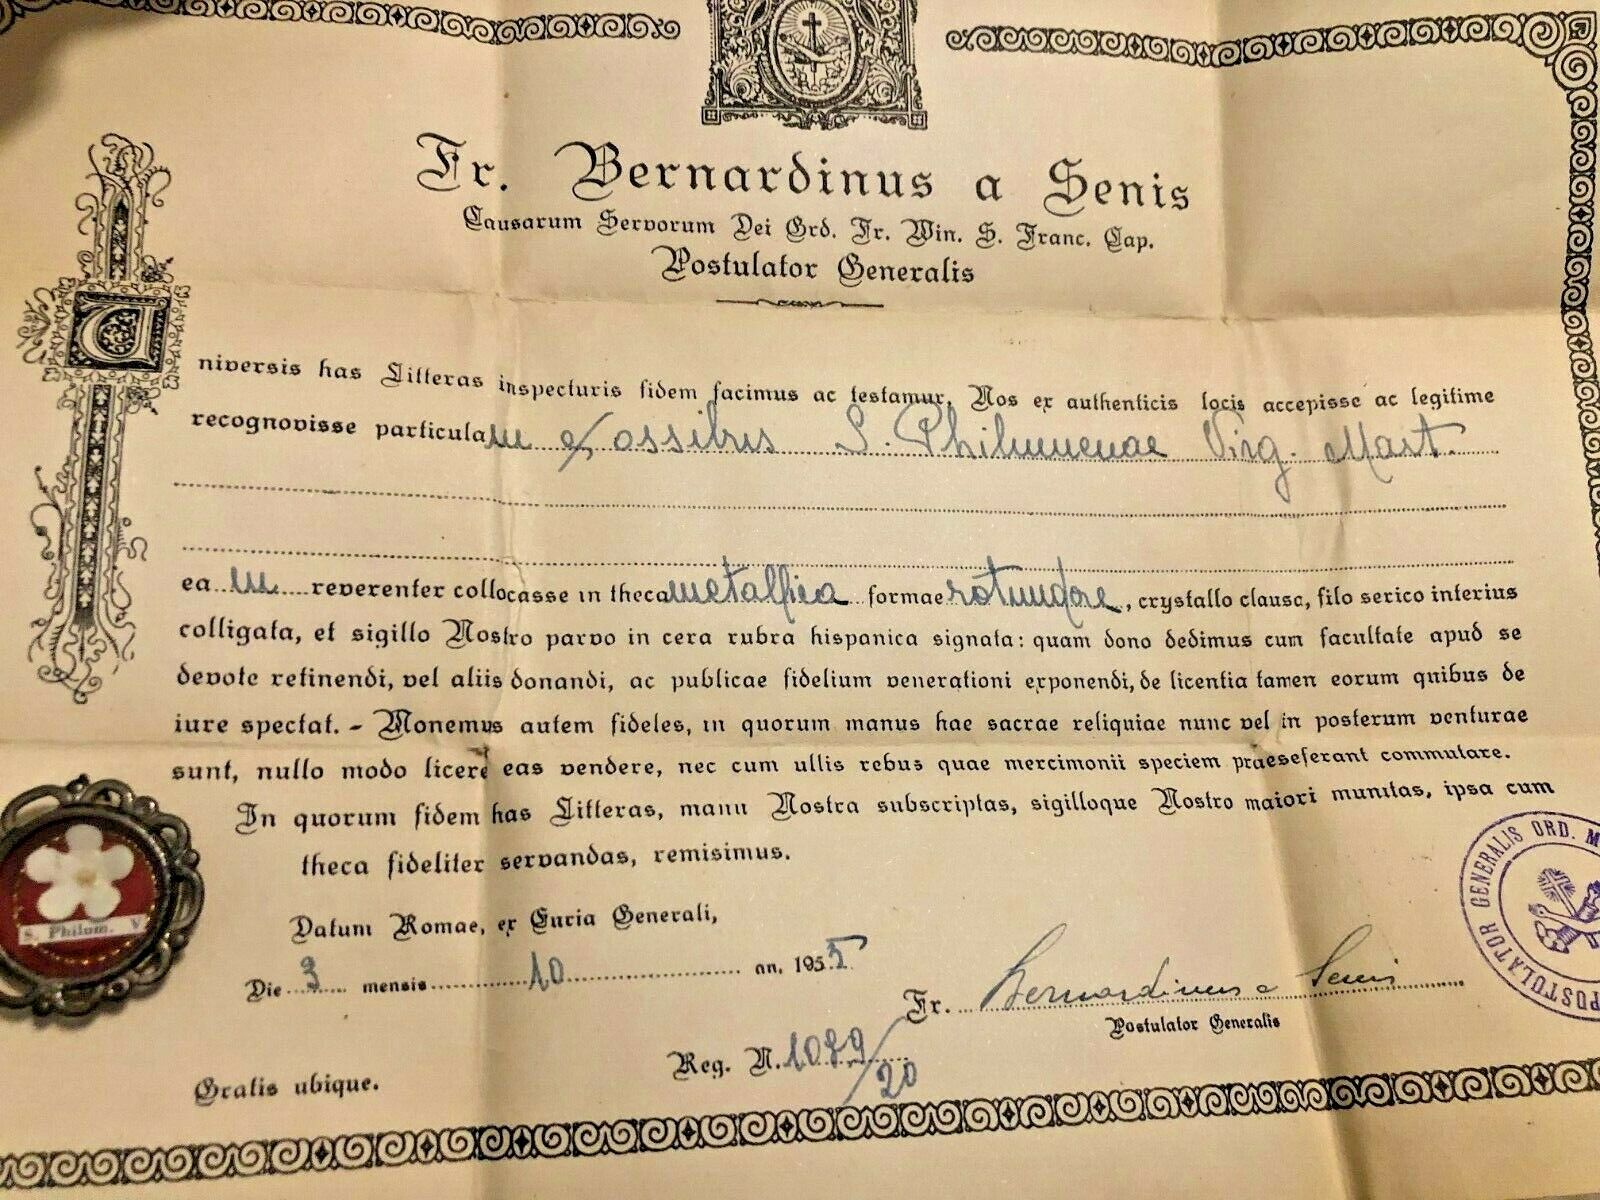 Fr. Bernardinus a Senis
Causarum Servorum Dei Ord. Fr. Min. S. Franc. Cap.
Postulator Generalis
Universis has Litteras inspecturis fidem facimus ac testamur, Nos ex authenticis locis accepisse ac legitime
recognovisse particulam ex ossibus S. Philumenae Virg. Mart.
ea m reverenter collocasse in theca metallica formae rotundae, crystallo clausa, filo serico interius
colligata, et sigillo Nostro parvo in cera rubra hispanica signata: quam dono dedimus cum facultate apud se
devote retinendi, vel aliis donandi, ac publicae fidelium venerationi exponendi, de licentia tamen eorum quibus de
iure spectat. - Monemus autem fideles, in quorum manus hae sacrae reliquiae nunc vel in posterum venturae
sunt, nullo modo licere eas vendere, nec cum ullis rebus quae mercimonii speciem praeseferant commutare.
In quorum fidem has Litteras, manu Nostra subscriptas, sigilloque Nostro maiori munitas, ipsa cum
theca fideliter servandas, remisimus.
Datum Romae, ex Curia Generali,
Die 3 mensis 10 an. 1955
Fr. Bernardinus a Senis
Postulator Generalis
Reg. N. 1089/20
Gratis ubique.
S. Philum. V
POSTULATOR GENERALIS ORD. M